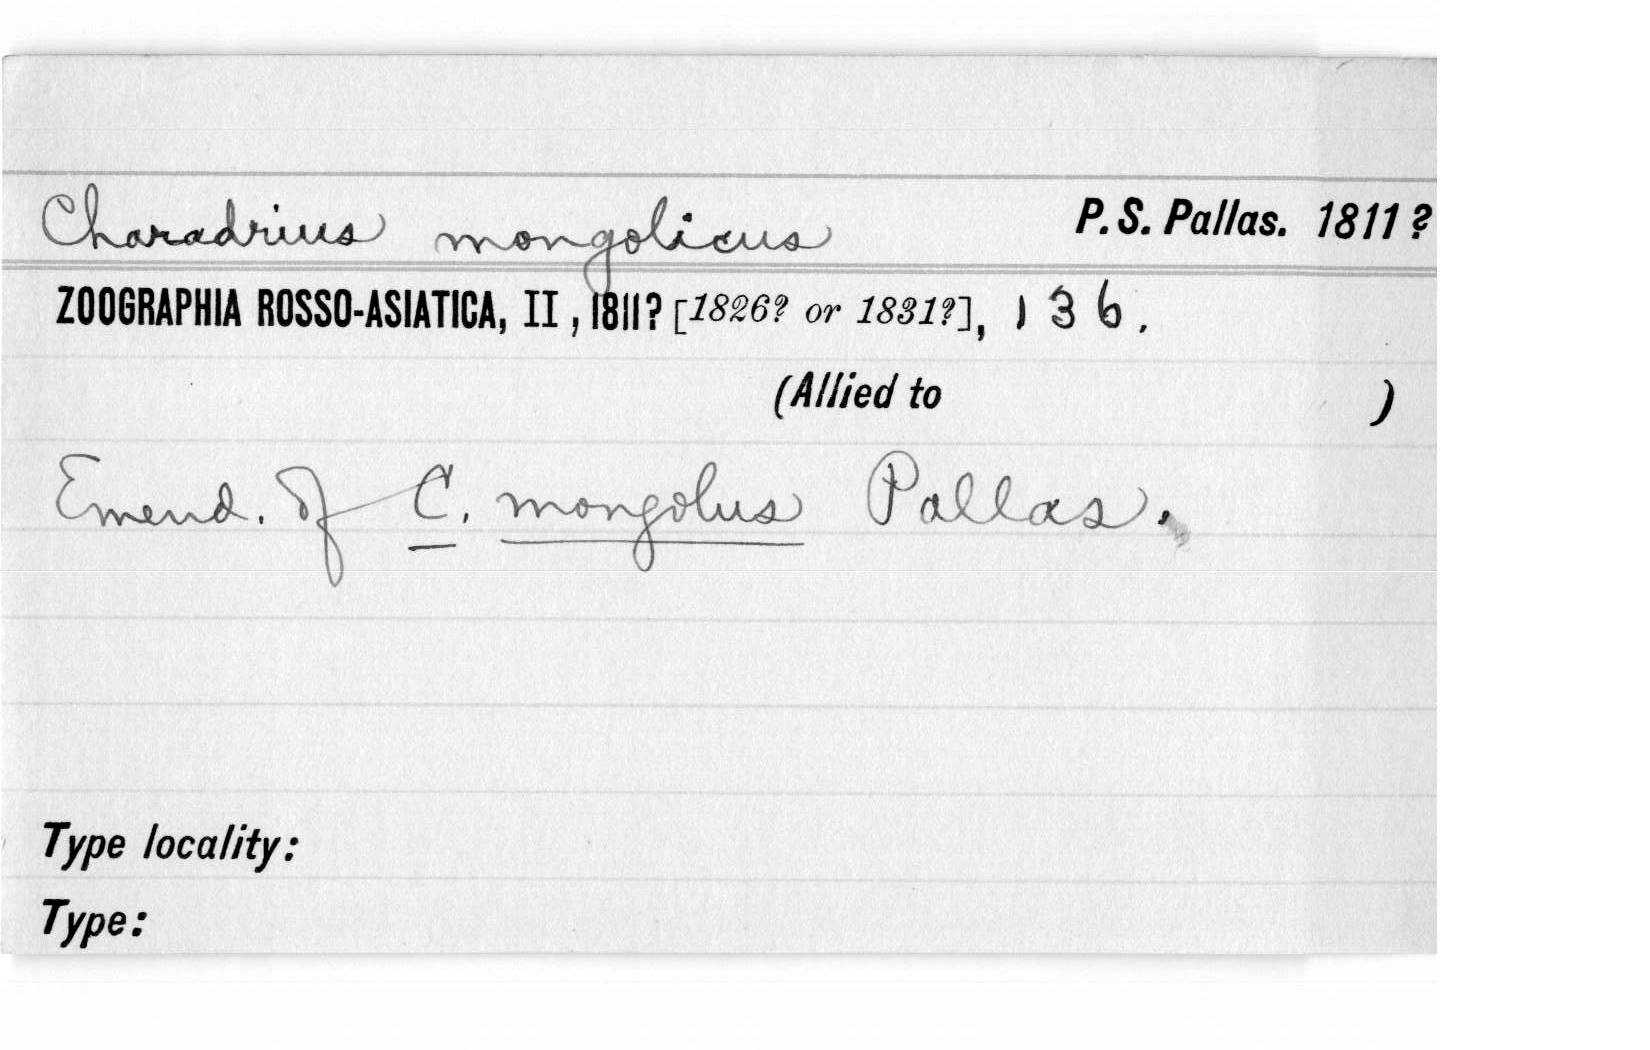 Charadrius mongolicus P. S. Pallas. 1811?
ZOOGRAPHIA ROSSO-ASIATICA, II, 1811? [1826? or 1831?], 136.
(Allied to )
Emend. of C. mongolus Pallas.
Type locality:
Type: